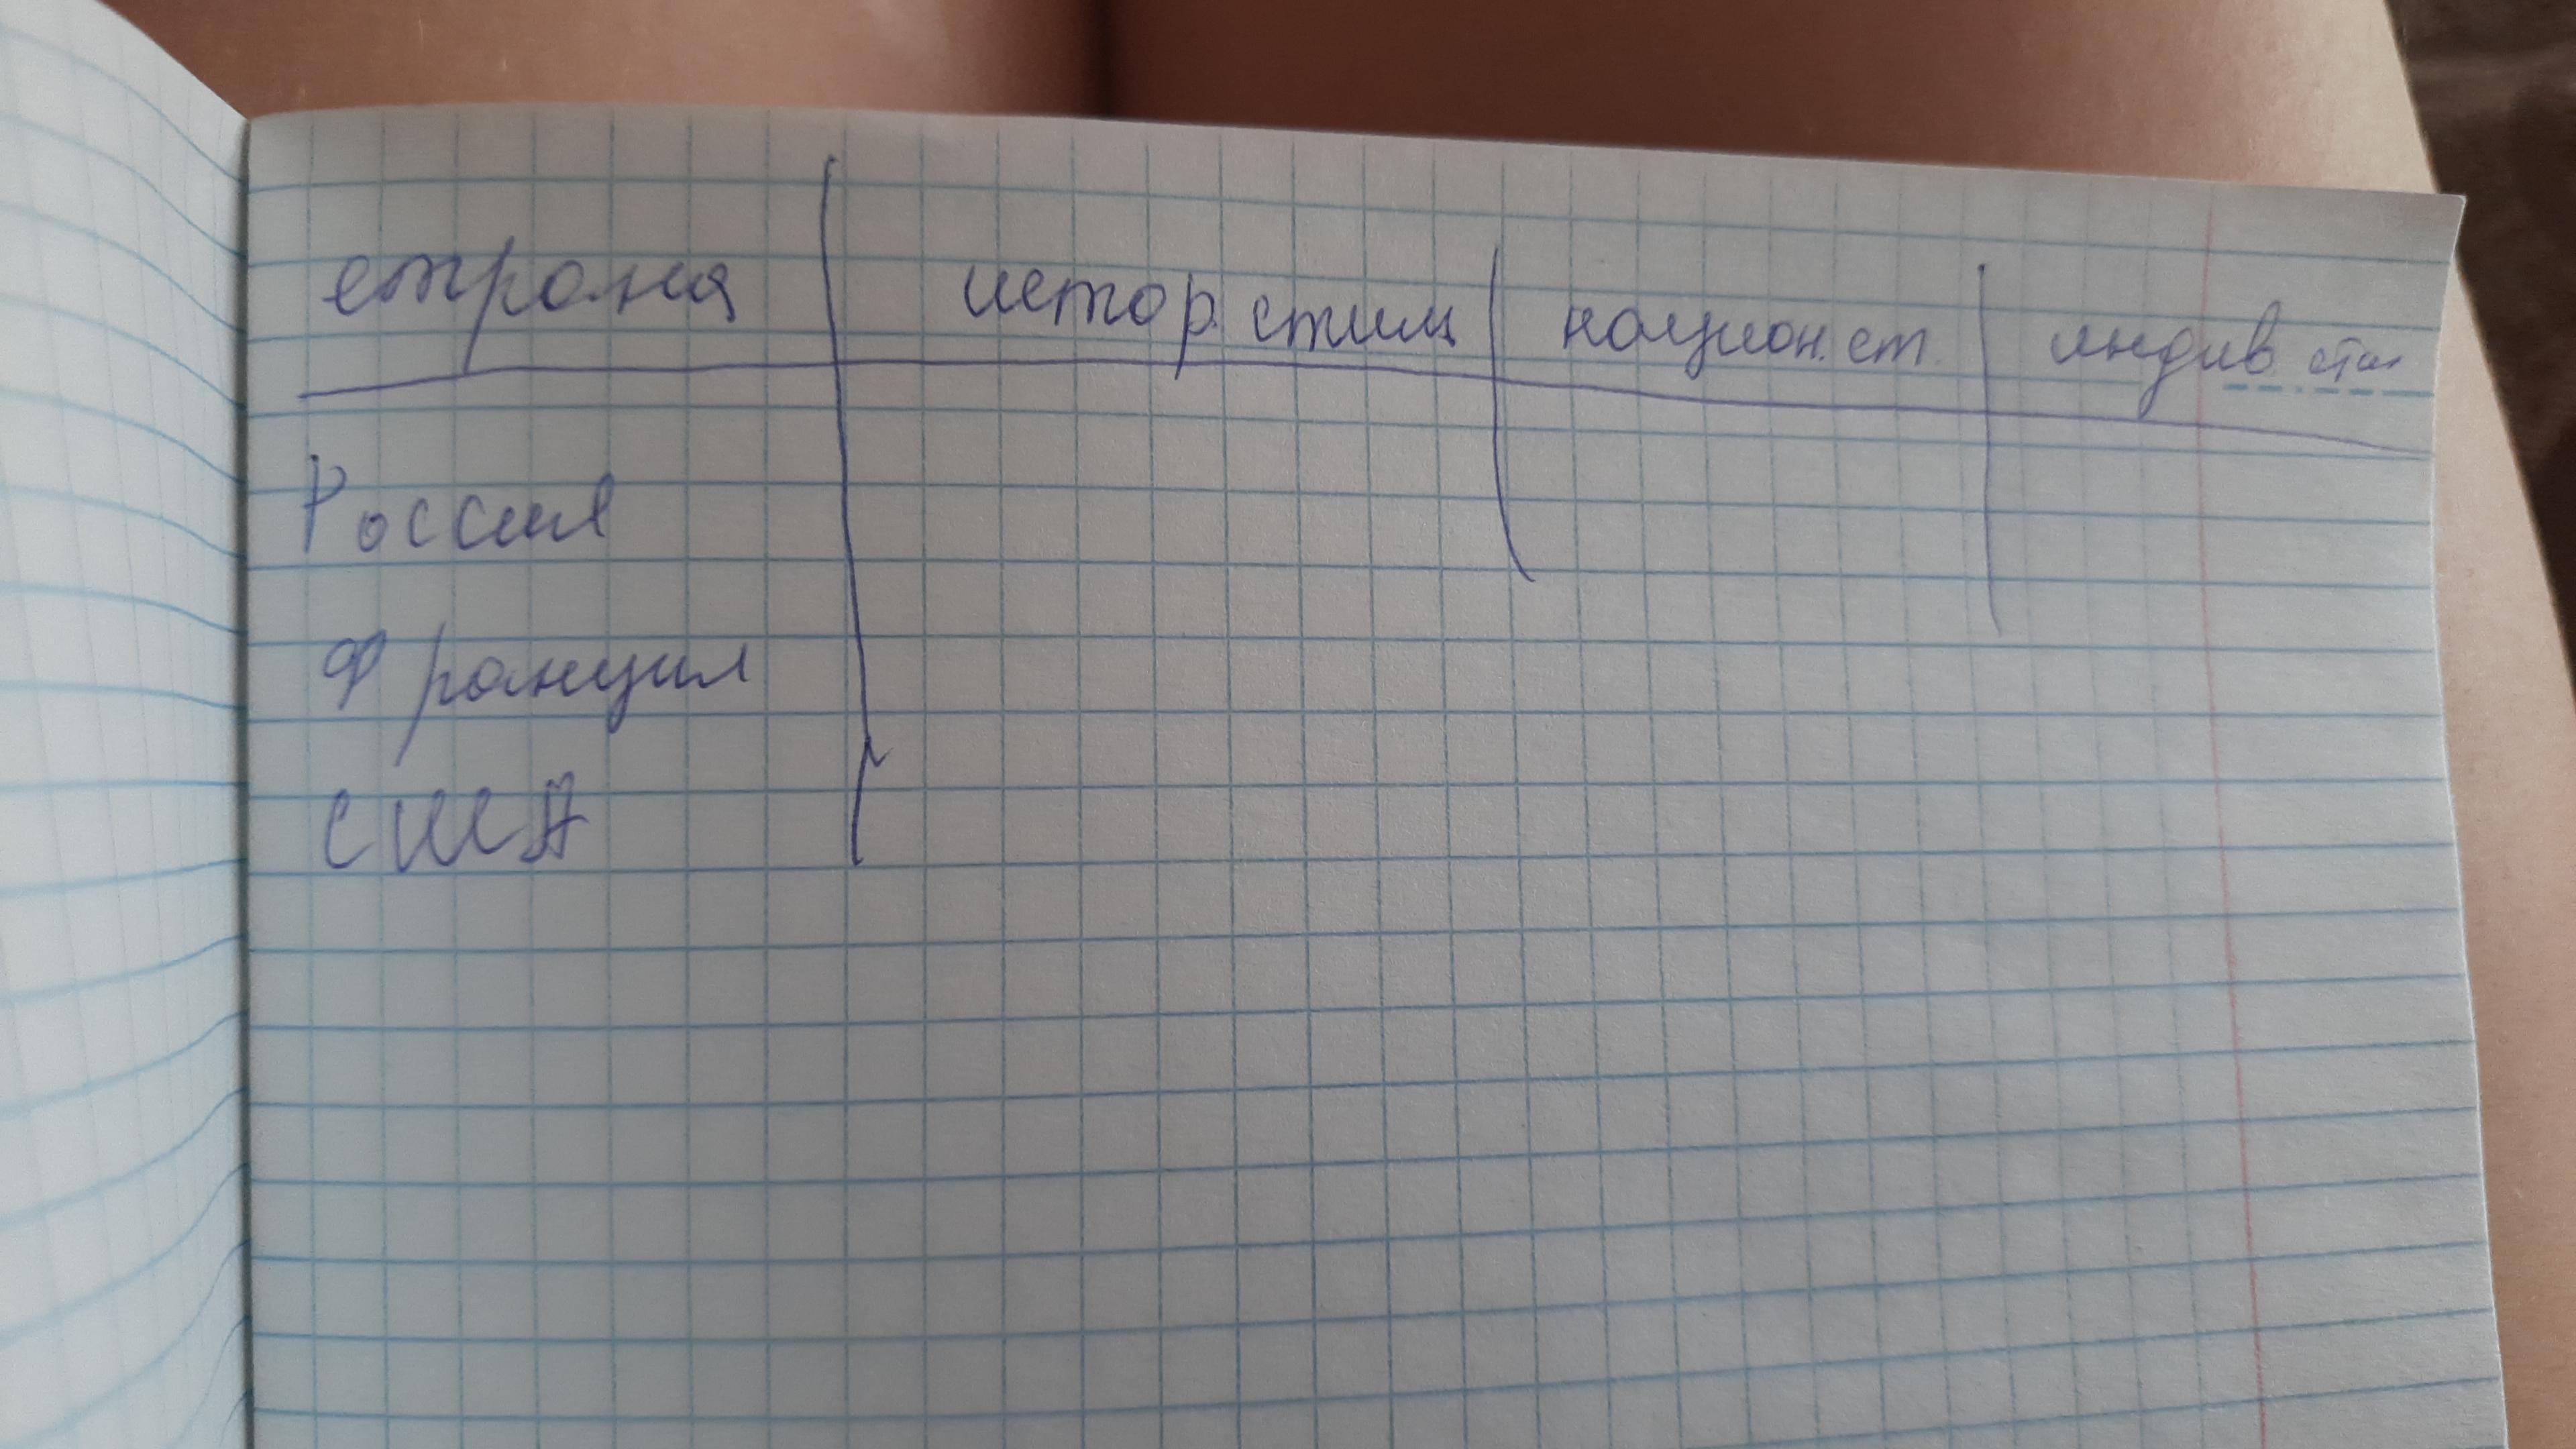 страна истор. стили национ. ст. индив стил
Россия
Франция
США